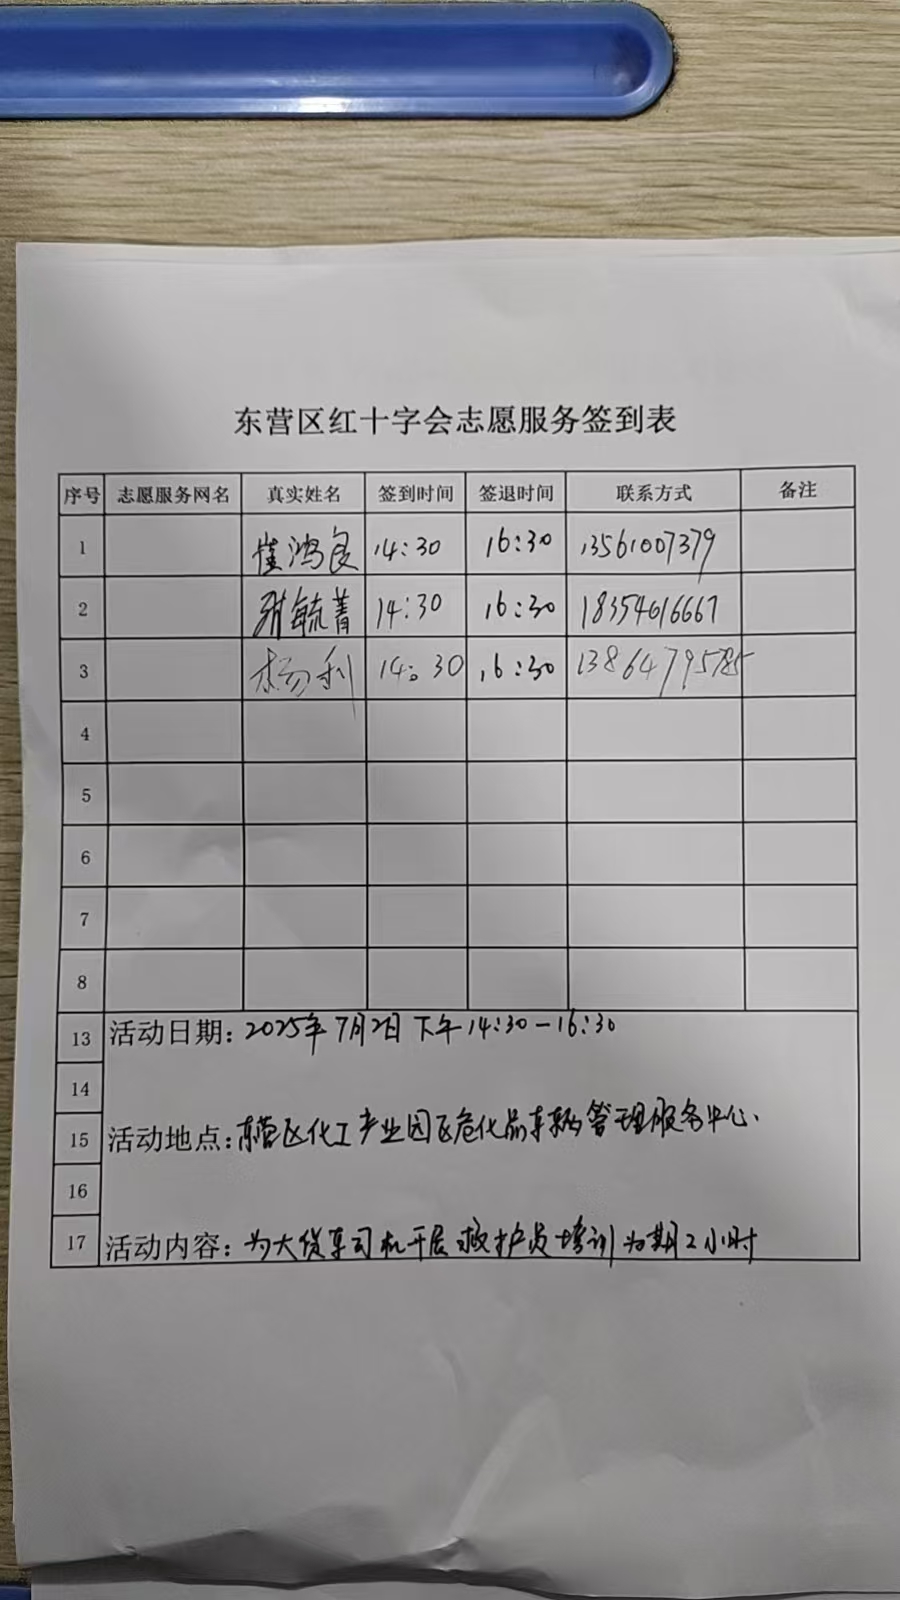 东营区红十字会志愿服务签到表
序号 志愿服务网名 真实姓名 签到时间 签退时间 联系方式 备注
1 崔鸿良 14:30 16:30 13561007379
2 毓菁 14:30 16:30 18354616667
3 杨利 14:30 16:30 13864795785
4
5
6
7
8
13 活动日期: 2025年7月2日下午14:30-16:30
14
15 活动地点: 东营区化工产业园区危化品车辆管理服务中心.
16
17 活动内容: 为大货车司机开展救护员培训为期2小时